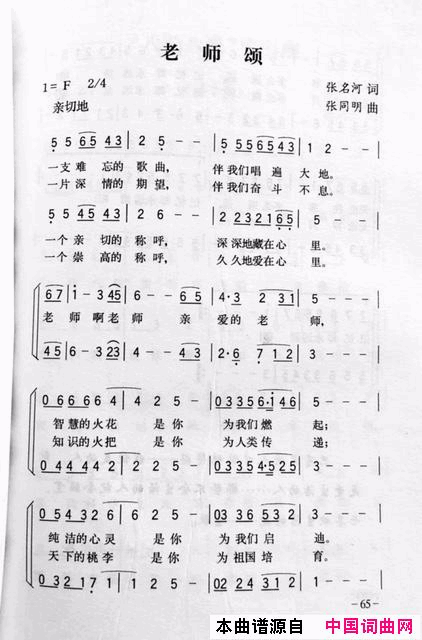 老师颂
1=F 2/4
张名河 词
亲切地
张同明 曲
5 5 65 43 | 2 5 - - | 5 5 5 65 43 | 1 2 - - |
一支难忘的歌曲, 伴我们唱遍大地。
一片深情的期望, 伴我们奋斗不息。
5 5 45 43 | 2 5 - - | 2 2 3 2 1 65 | 5 - - - |
一个亲切的称呼, 深深地藏在心里。
一个崇高的称呼, 久久地爱在心里。
67 | 1 - 3 45 | 6 - - 65 | 4·3 2 31 | 5 - - - |
老师啊老师亲爱的老师,
45 | 6 - 1 23 | 4 - - 43 | 2·6 7 12 | 5 - - - |
0 6 6 6 6 4 | 6 4 2 - | 0 3 3 5 6·1 4 6 | 5 - - - |
智慧的火花是你为我们燃起;
知识的火把是你为人类传递;
0 4 4 4 4 2 | 4 2 2 - | 0 3 3 5 4·5 2 4 | 3 - - - |
0 5 4 3 2 6 | 5 2 5 - | 0 5 4 3 2 1 3 | 2 - - - |
纯洁的心灵是你为我们启迪。
天下的桃李是你为祖国培育。
0 3 2 1 7 | 2 5 2 - | 0 2 4 3 2 1 | 5 - - - |
－65－
本曲谱源自 中国词曲网